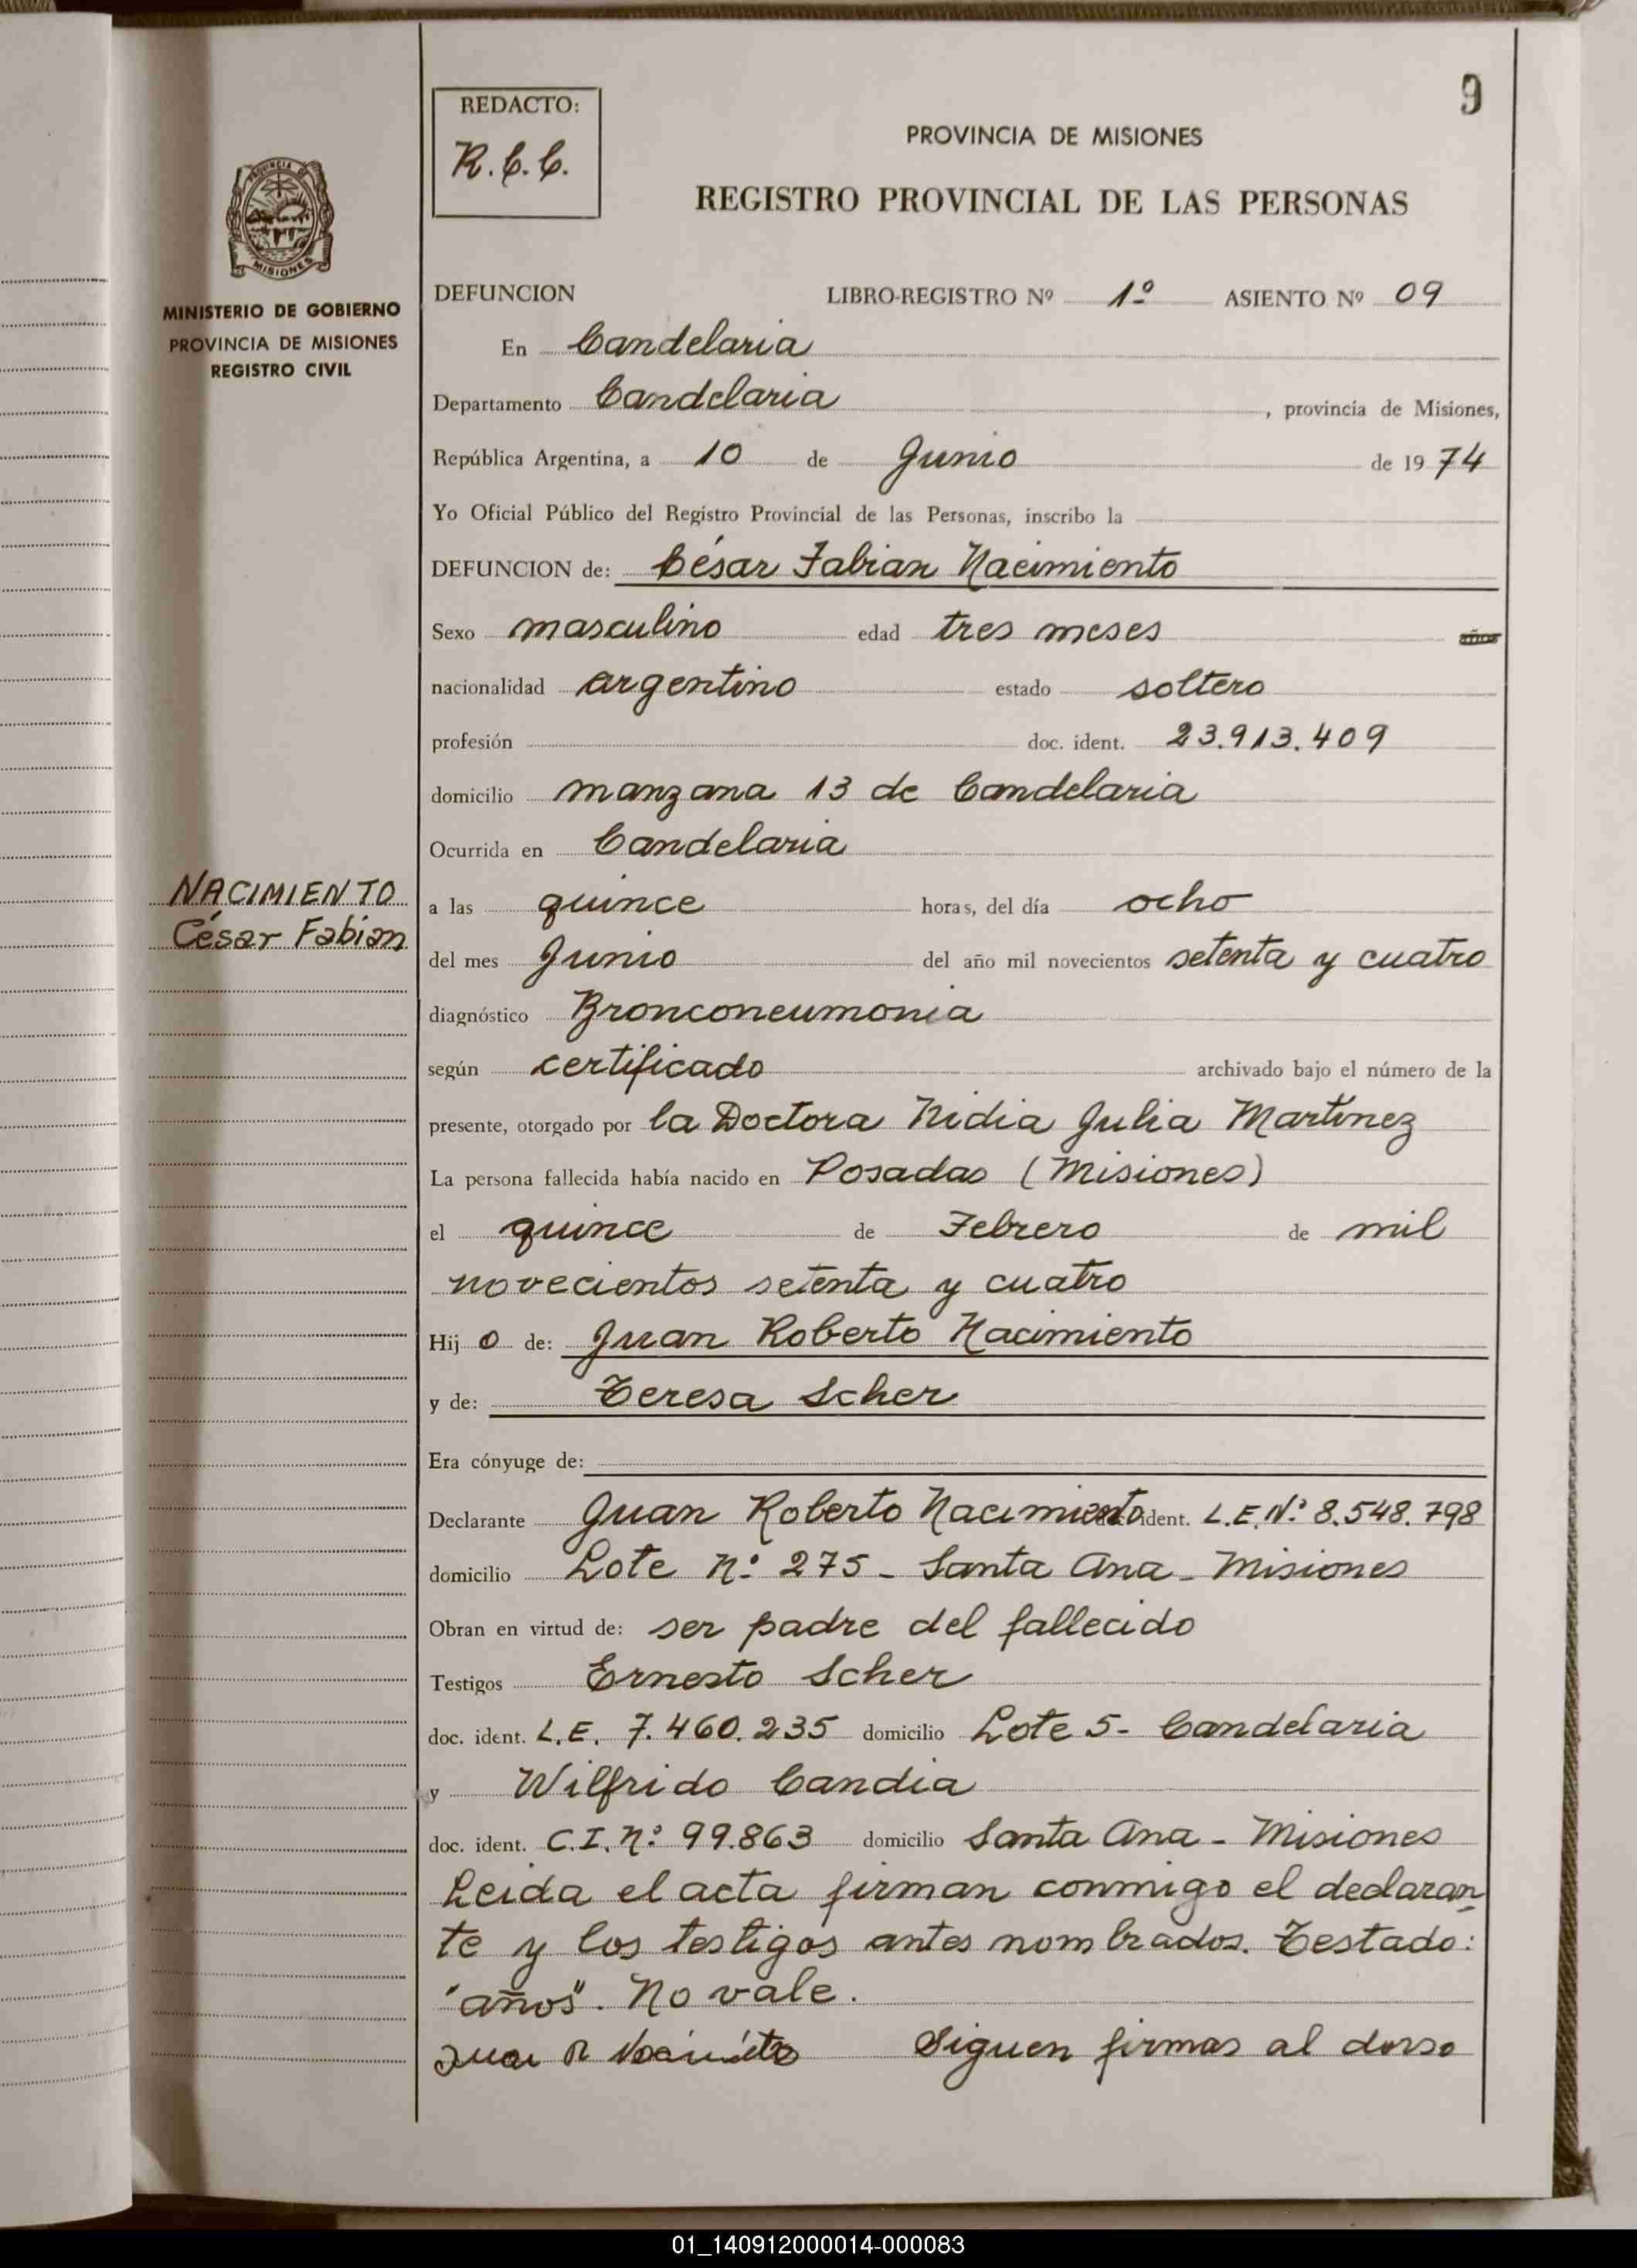 9
REDACTO:
R.C.C.
PROVINCIA DE MISIONES
REGISTRO PROVINCIAL DE LAS PERSONAS
PROVINCIA DE
MISIONES
MINISTERIO DE GOBIERNO
PROVINCIA DE MISIONES
REGISTRO CIVIL
DEFUNCION LIBRO-REGISTRO Nº 1º ASIENTO Nº 09
En Candelaria
Departamento Candelaria, provincia de Misiones,
República Argentina, a 10 de Junio de 1974
Yo Oficial Público del Registro Provincial de las Personas, inscribo la
DEFUNCION de: César Fabian Nacimiento
Sexo masculino edad tres meses años
nacionalidad argentino estado soltero
profesión doc. ident. 23.913.409
domicilio manzana 13 de Candelaria
Ocurrida en Candelaria
NACIMIENTO
César Fabian
a las quince horas, del día ocho
del mes Junio del año mil novecientos setenta y cuatro
diagnóstico Bronconeumonia
según certificado archivado bajo el número de la
presente, otorgado por la Doctora Nidia Julia Martínez
La persona fallecida había nacido en Posadas (Misiones)
el quince de Febrero de mil
novecientos setenta y cuatro
Hijo de: Juan Roberto Nacimiento
y de: Teresa Scher
Era cónyuge de:
Declarante Juan Roberto Nacimiento ident. L.E. Nº 8.548.798
domicilio Lote Nº 275 - Santa Ana - Misiones
Obran en virtud de: ser padre del fallecido
Testigos Ernesto Scher
doc. ident. L.E. 7.460.235 domicilio Lote 5 - Candelaria
y Wilfrido Candia
doc. ident. C.I. Nº 99.863 domicilio Santa Ana - Misiones
Leida el acta firman conmigo el declaran
te y los testigos antes nombrados. Testado:
"años". No vale.
Juan R Nacimiento Siguen firmas al dorso
01_140912000014-000083